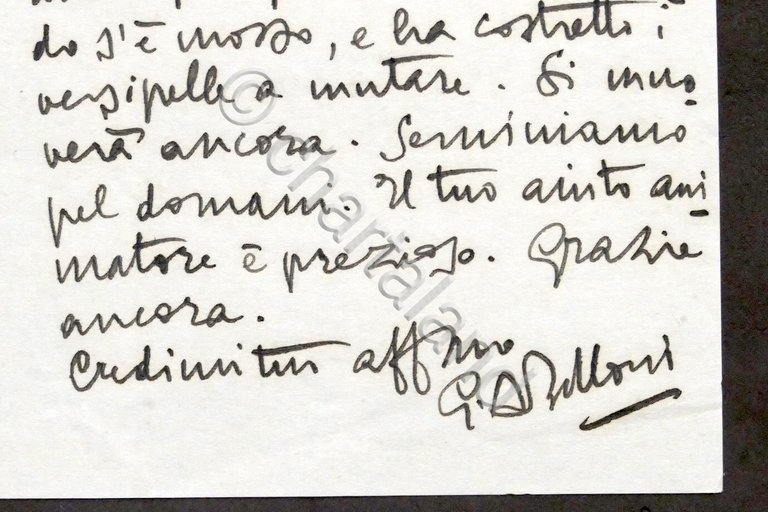 do s'è mosso, e ha costretto i
versipelle a mutare. Si muo
verà ancora. Seminiamo
pel domani. Il tuo aiuto ani
matore è prezioso. Grazie
ancora.
Credimi tuo aff mo
G. A. Belloni
© chartaland